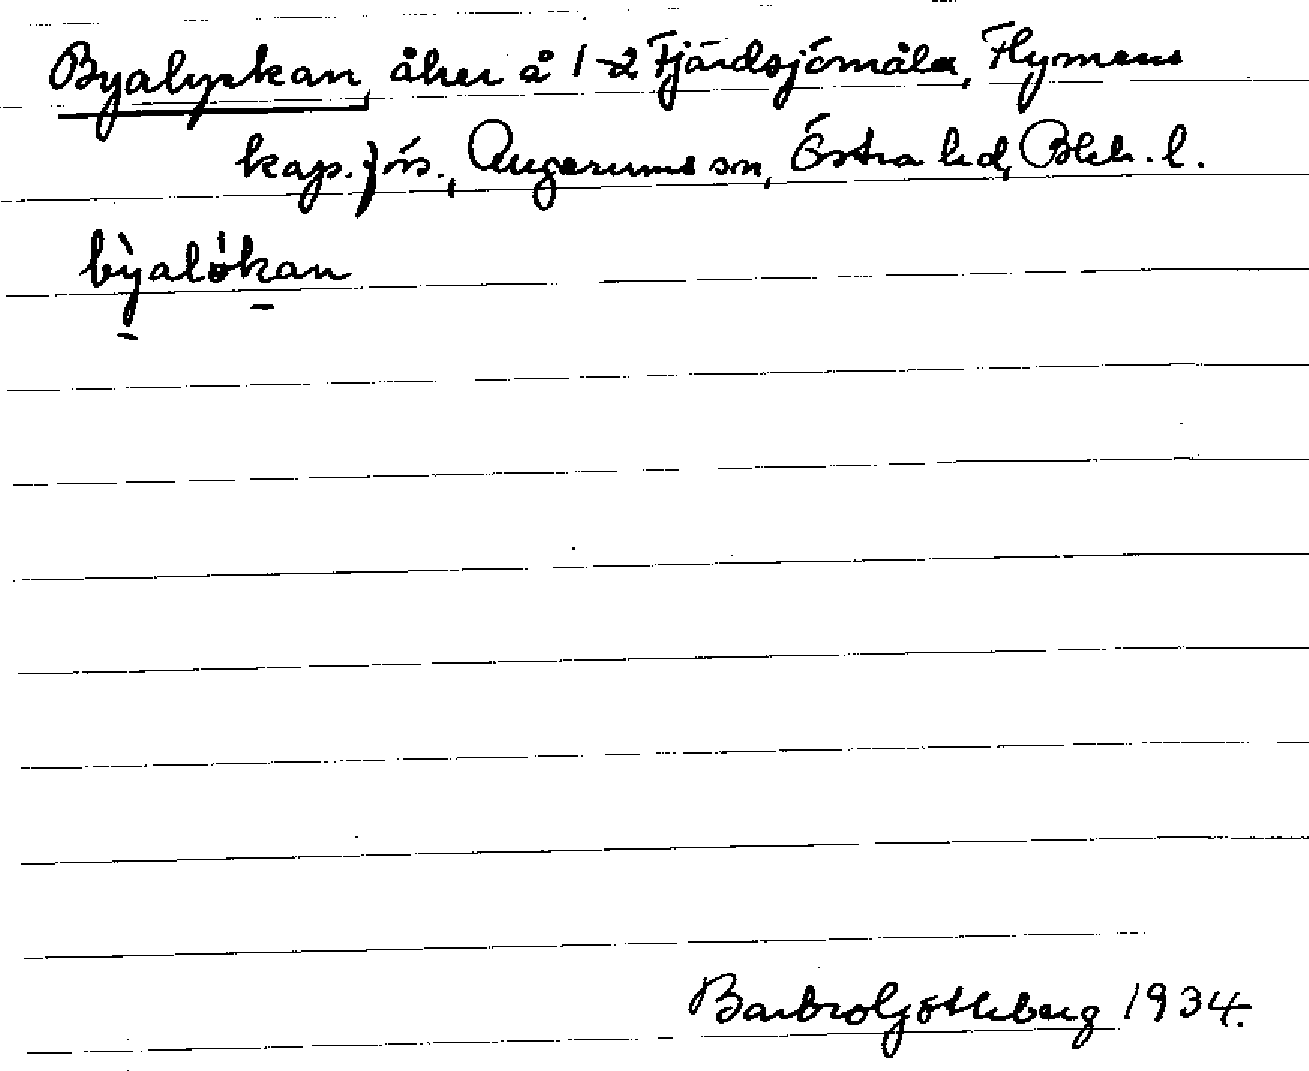 Byalyckan, åker å 1-2 Fjärdsjömåla, Flymens
kap. förs., Augerums sn, Östra hd, Blek. l.
byalökan
Barbro Götleberg 1934.